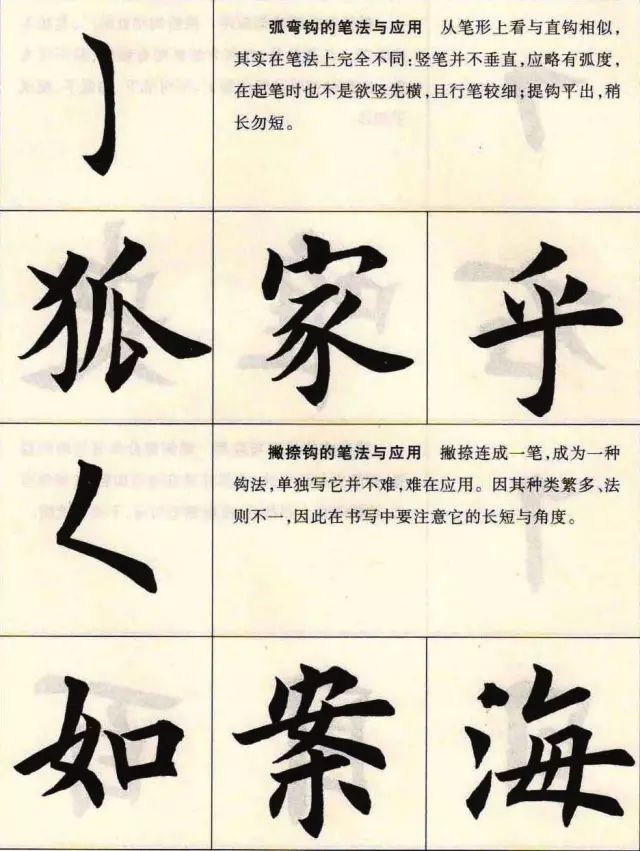 弧弯钩的笔法与应用 从笔形上看与直钩相似,
其实在笔法上完全不同:竖笔并不垂直,应略有弧度,
在起笔时也不是欲竖先横,且行笔较细;提钩平出,稍
长勿短。
狐 家 乎
撇捺钩的笔法与应用 撇捺连成一笔,成为一种
钩法,单独写它并不难,难在应用。因其种类繁多、法
则不一,因此在书写中要注意它的长短与角度。
如 案 海